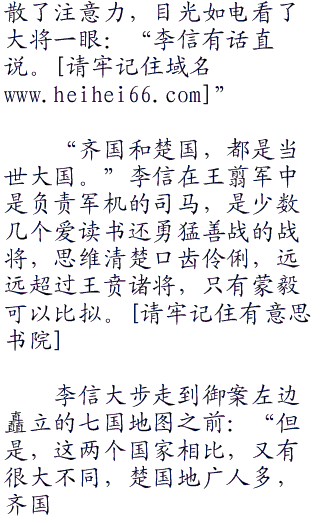 散了注意力，目光如电看了
大将一眼：“李信有话直
说。[请牢记住域名
www.heihei66.com]”
“齐国和楚国，都是当
世大国。”李信在王翦军中
是负责军机的司马，是少数
几个爱读书还勇猛善战的战
将，思维清楚口齿伶俐，远
远超过王贲诸将，只有蒙毅
可以比拟。[请牢记住有意思
书院]
李信大步走到御案左边
矗立的七国地图之前：“但
是，这两个国家相比，又有
很大不同，楚国地广人多，
齐国